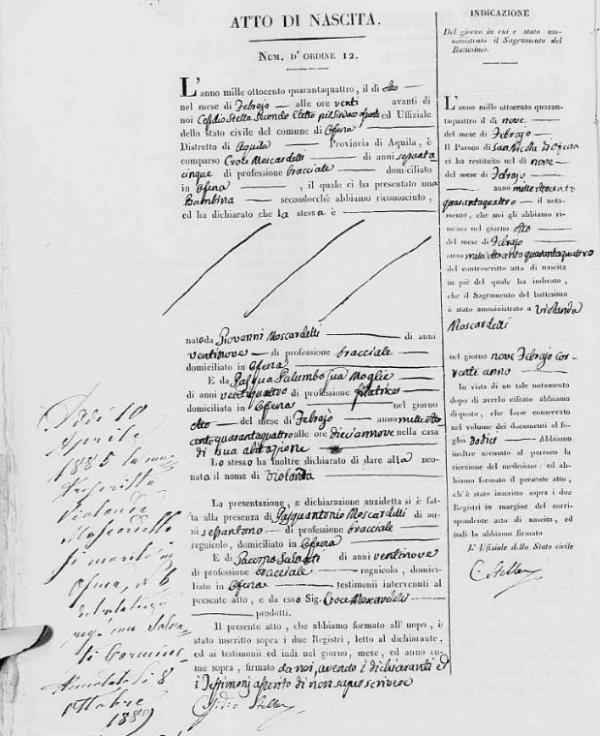 ATTO DI NASCITA.
NUM. D' ORDINE 12.
L' anno mille ottocento quarantaquattro, il dì otto
nel mese di Febrajo alle ore venti avanti di
noi Cesidio Stella Secondo Eletto pel sindaco ed Uffiziale
dello stato civile del comune di Ofena
Distretto di Aquila Provincia di Aquila, è
comparso Croce Moscardelli di anni sessanta
cinque di professione bracciale domiciliato
in Ofena, il quale ci ha presentato una
Bambina secondochè abbiamo riconosciuto,
ed ha dichiarato che la stessa è
nata da Giovanni Moscardelli di anni
ventinove di professione bracciale
domiciliato in Ofena
E da Pasqua Palumbo sua Moglie
di anni ventiquattro di professione filatrice
domiciliata in Ofena nel giorno
otto del mese di Febrajo anno mille otto
cento quarantaquattro alle ore diciannove nella casa
di sua abitazione
Lo stesso ha inoltre dichiarato di dare alla neo-
nata il nome di Violanta
La presentazione, e dichiarazione anzidetta si è fat-
ta alla presenza di Pasquantonio Moscardelli di an-
ni sessantano di professione bracciale
regnicolo, domiciliato in Ofena
E di Giacomo di anni ventinove
di professione bracciale regnicolo, domici-
liato in Ofena testimonii intervenuti al
presente atto, e da esso Sig. Croce Moscardelli
prodotti.
Il presente atto, che abbiamo formato all' uopo, è
stato inscritto sopra i due Registri, letto al dichiarante,
ed ai testimonii ed indi nel giorno, mese, ed anno co-
me sopra, firmato da noi, avendo i dichiaranti ed
i Testimonj asserito di non saper scrivere
Cesidio Stella
INDICAZIONE
Del giorno in cui e stato am-
ministrato il Sagramento del
Battesimo.
L' anno mille ottocento quaran-
taquattro il dì nove
del mese di Febrajo
Il Paroco di San Nicola di Ofena
ci ha restituito nel dì nove
del mese di Febrajo
anno mille ottocento
quarantaquattro il nota-
mento, che noi gli abbiamo ri-
messo nel giorno otto
del mese di Febrajo
anno mille ottocento quarantaquattro
del controscritto atto di nascita
in piè del quale ha indicato,
che il Sagramento del battesimo
è stato amministrato a Violanda
Moscardelli
nel giorno nove Febrajo cor-
rente anno
In vista di un tale notamento
dopo di averlo cifrato abbiamo
disposto, che fosse conservato
nel volume dei documenti al fo-
glio dodici Abbiamo
inoltre accusato al parroco la
ricezione del medesimo: ed ab-
biamo formato il presente atto,
ch'è stato inscritto sopra i due
Registri in margine del corri-
spondente atto di nascita, ed
indi lo abbiamo firmato
L' Uffiziale dello Stato civile
C. Stella
Dì 10
Aprile
1885 la
Violanda
Moscardelli
si maritò in
Ofena, N. 6
con Salva-
Annotato lì 8
Ottobre
1889